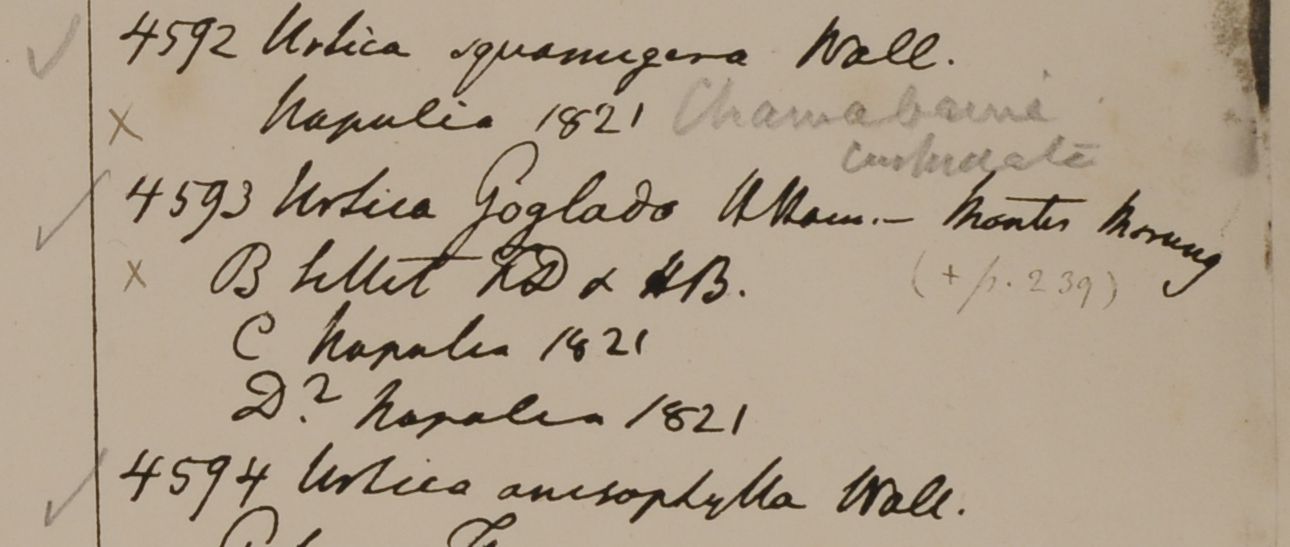 4592 Urtica squamigera Wall.
Napalia 1821 Chamabainia
cuspidata
4593 Urtica Goglado HHam.- Montes Morung
B Sillet FD & HB. (+ p. 239)
C Napalia 1821
D? Napalia 1821
4594 Urtica anisophylla Wall.